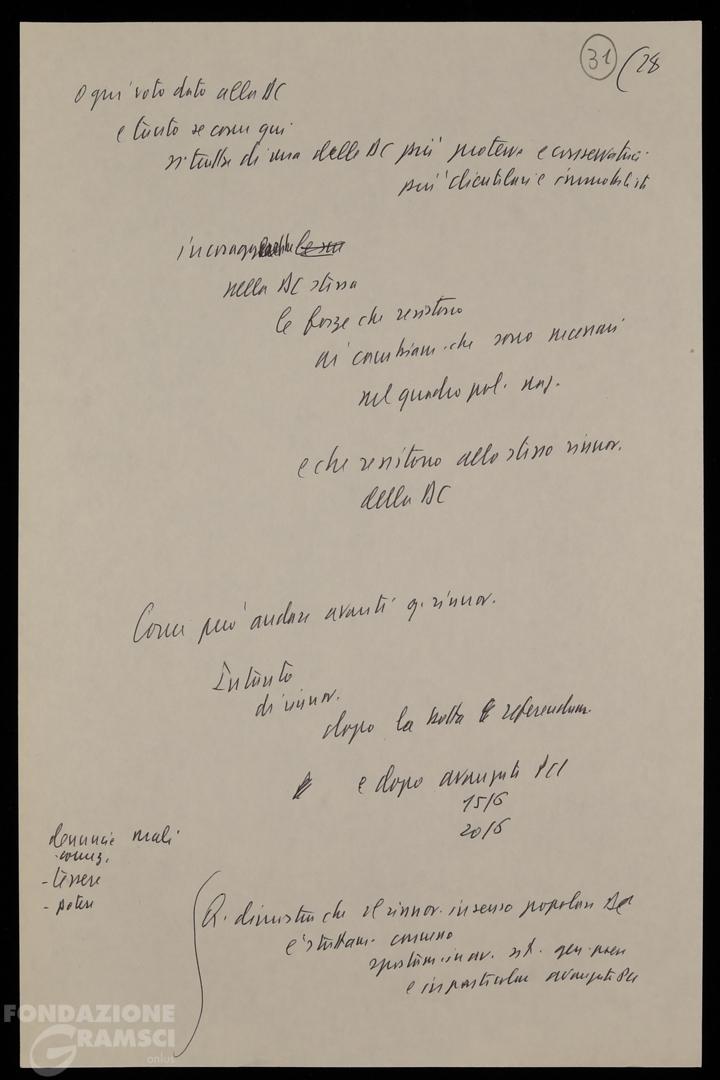 31 (28
Ogni voto dato alla DC
e tanto se come qui
si tratta di una delle DC più potenti e conservatrici
più clientelari e immobilisti
incoragg
nella DC stessa
le forze che resistono
ai cambiam. che sono necessari
nel quadro pol. naz.
e che resistono allo stesso rinnov.
della DC
Come può andare avanti q. rinnov.
Intanto
di rinnov.
dopo la botta referendum
e dopo avanzata PCI
15/6
20/6
denuncie mali
- correnz.
- tessere
- potere
Q. dimostra che il rinnov. in senso popolare DC
è strettam. connesso
spostam. in av. sit. gen. paese
e in particolare avanzata PCI
FONDAZIONE
GRAMSCI
onlus